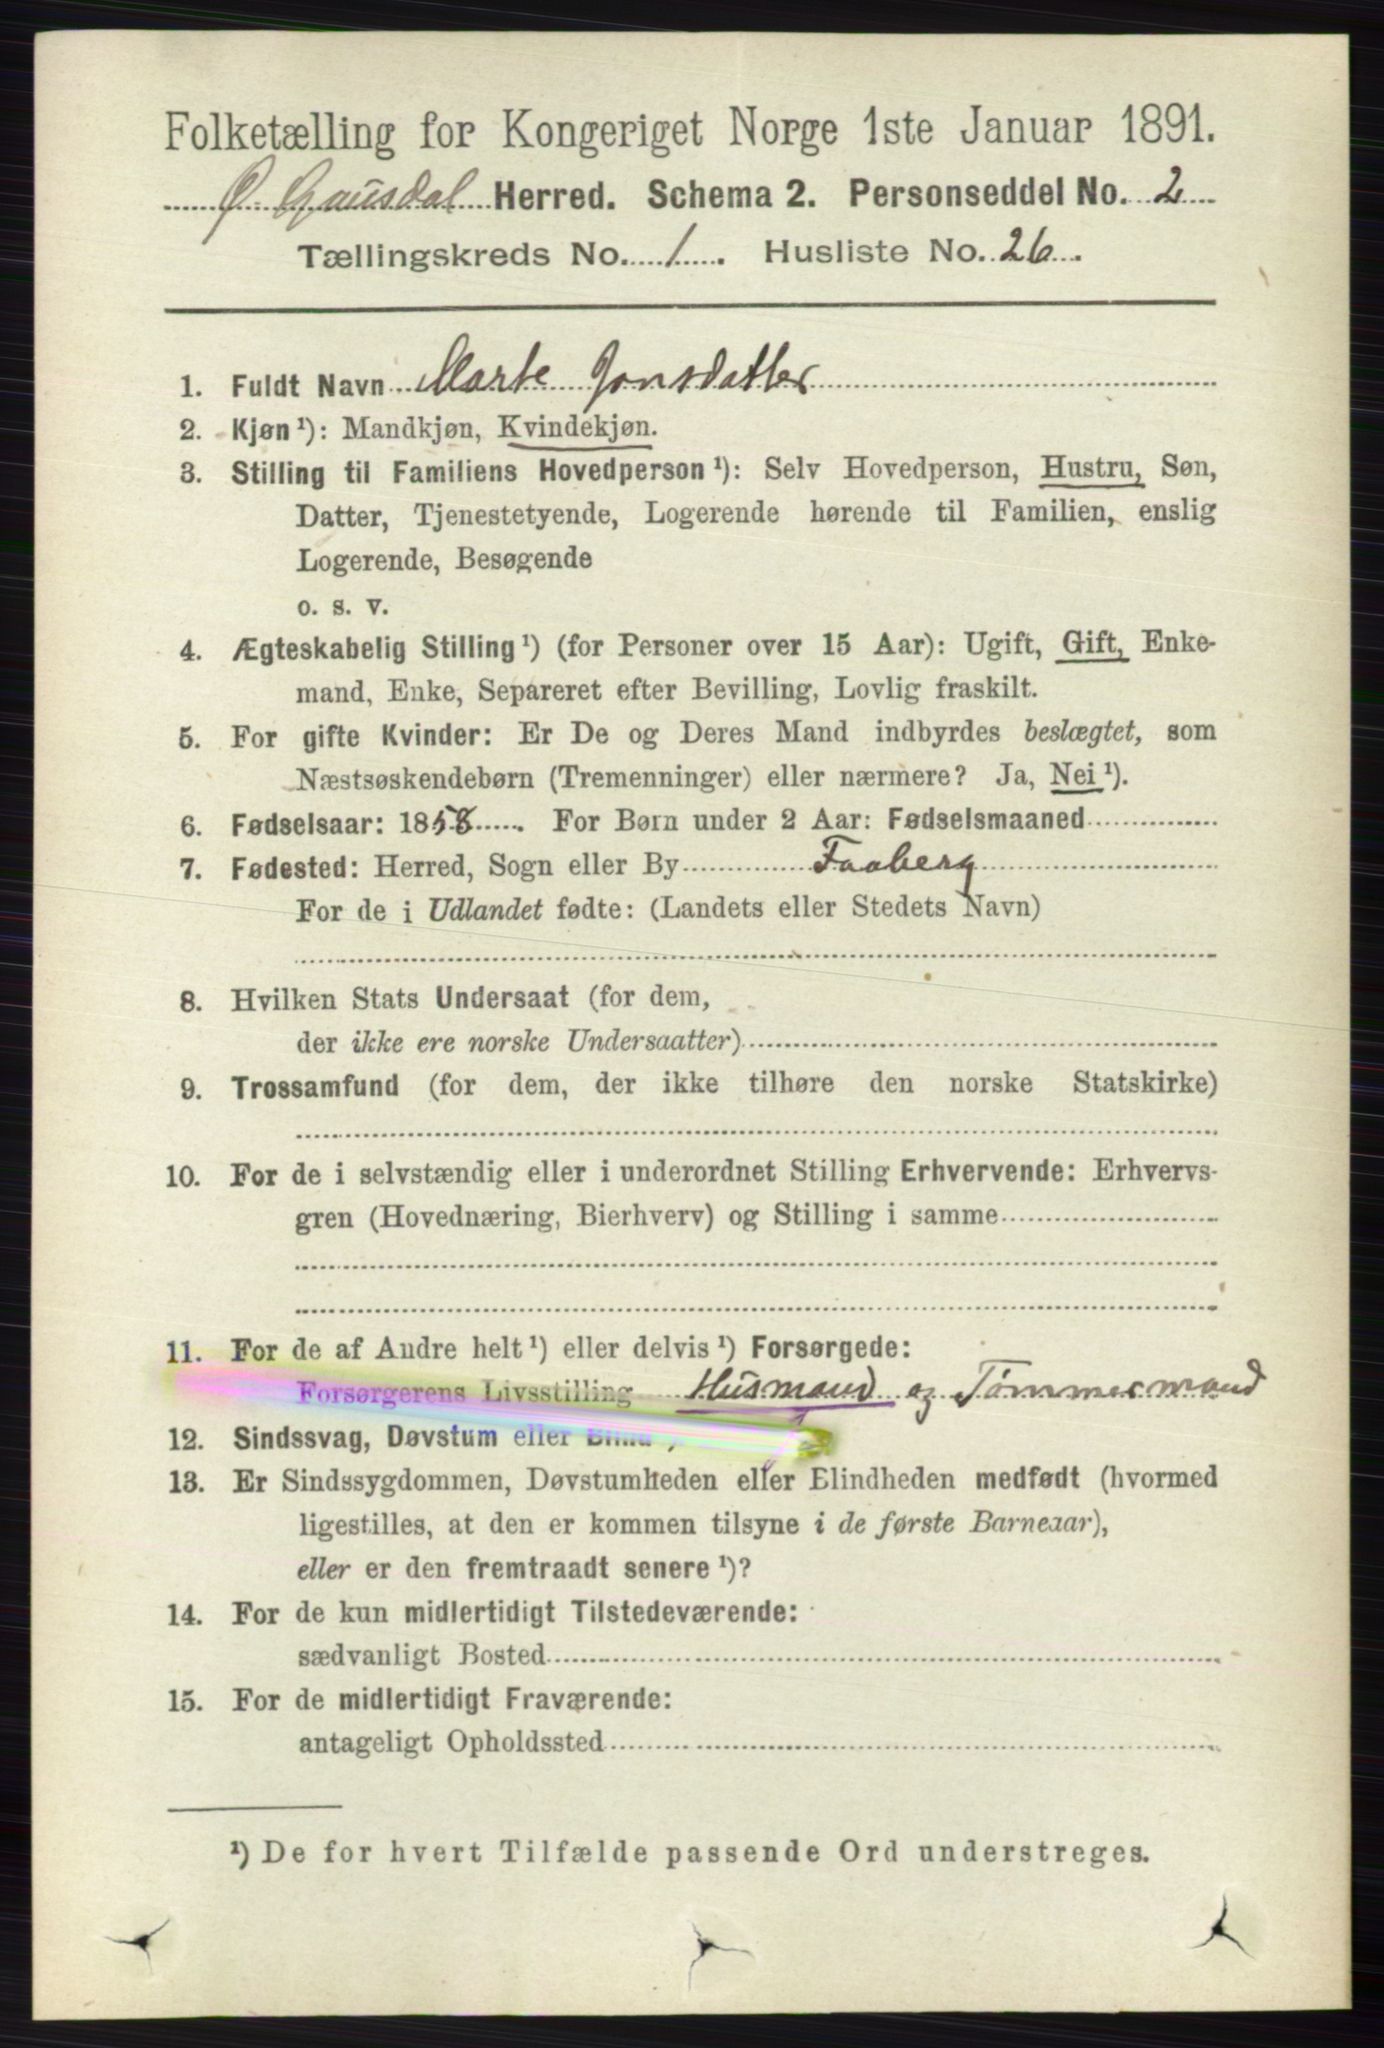 Folketælling for Kongeriget Norge 1ste Januar 1891.
Ø. Gausdal Herred. Schema 2. Personseddel No. 2
Tællingskreds No. 1. Husliste No. 26.
1. Fuldt Navn Marte Jonsdatter
2. Kjøn ¹): Mandkjøn, Kvindekjøn.
3. Stilling til Familiens Hovedperson ¹): Selv Hovedperson, Hustru, Søn,
Datter, Tjenestetyende, Logerende hørende til Familien, enslig
Logerende, Besøgende
o. s. v.
4. Ægteskabelig Stilling ¹) (for Personer over 15 Aar): Ugift, Gift, Enke-
mand, Enke, Separeret efter Bevilling, Lovlig fraskilt.
5. For gifte Kvinder: Er De og Deres Mand indbyrdes beslægtet, som
Næstsøskendebørn (Tremenninger) eller nærmere? Ja, Nei ¹).
6. Fødselsaar: 1858. For Børn under 2 Aar: Fødselsmaaned
7. Fødested: Herred, Sogn eller By Faaberg
For de i Udlandet fødte: (Landets eller Stedets Navn)
8. Hvilken Stats Undersaat (for dem,
der ikke ere norske Undersaatter)
9. Trossamfund (for dem, der ikke tilhøre den norske Statskirke)
10. For de i selvstændig eller i underordnet Stilling Erhvervende: Erhvervs-
gren (Hovednæring, Bierhverv) og Stilling i samme
11. For de af Andre helt ¹) eller delvis ¹) Forsørgede:
Forsørgerens Livsstilling Husmand og Tømmermand
12. Sindssvag, Døvstum eller Blind
13. Er Sindssygdommen, Døvstumheden eller Blindheden medfødt (hvormed
ligestilles, at den er kommen tilsyne i de første Barneaar),
eller er den fremtraadt senere ¹)?
14. For de kun midlertidigt Tilstedeværende:
sædvanligt Bosted
15. For de midlertidigt Fraværende:
antageligt Opholdssted
¹) De for hvert Tilfælde passende Ord understreges.